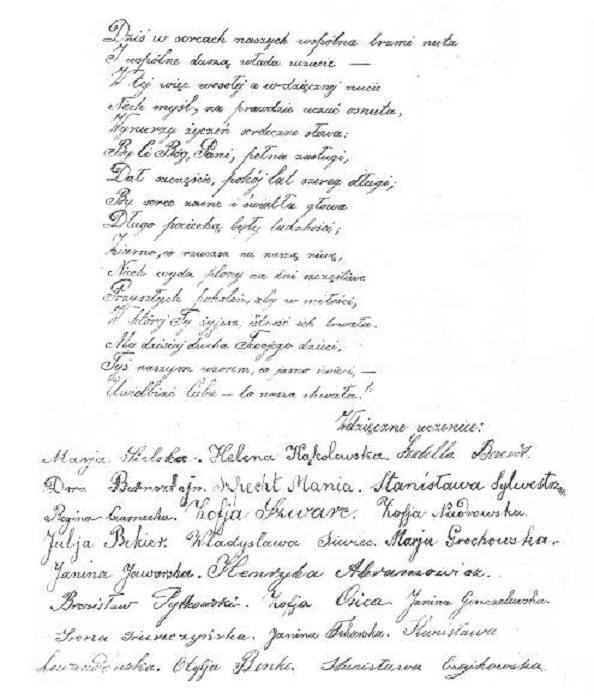 Dziś w sercach naszych wspólna brzmi nuta
I wspólne duszą włada uczucie —
W tej więc wesołej a wdzięcznej nucie
Niech myśl, na prawdzie uczuć osnuta,
Wynurzy życzeń serdeczne słowa:
By Ci Bóg, Pani, pełna zasługi,
Dał szczęście, pokój lat szereg długi;
By serce zacne i światła głowa
Długo pociechą były ludzkości;
Ziarno, co rzucasz na naszą niwę,
Niech wyda plony na dni szczęśliwe
Przyszłych pokoleń, aby w miłości,
W której Ty żyjesz, ich trwała.
My dzisiaj ducha Twojego dzieci,
Tyś naszym wzorem, co jasno świeci, —
Uwielbiać Ciebie — to nasza chwała!
Wdzięczne uczenice:
Marja Helena Kąkolewska. Izabella
Szpecht Mania. Stanisława Sylwestrz
Regina Czarnecka. Zofja Szwarc. Zofja Nadrowska.
Julja Bekier. Władysława Marja Grochowska.
Janina Jaworska. Henryka Abramowicz.
Bronisław Zofja Osica. Janina
Irena Janina Stanisława
Lewandowska. Otylja Benke. Stanisława